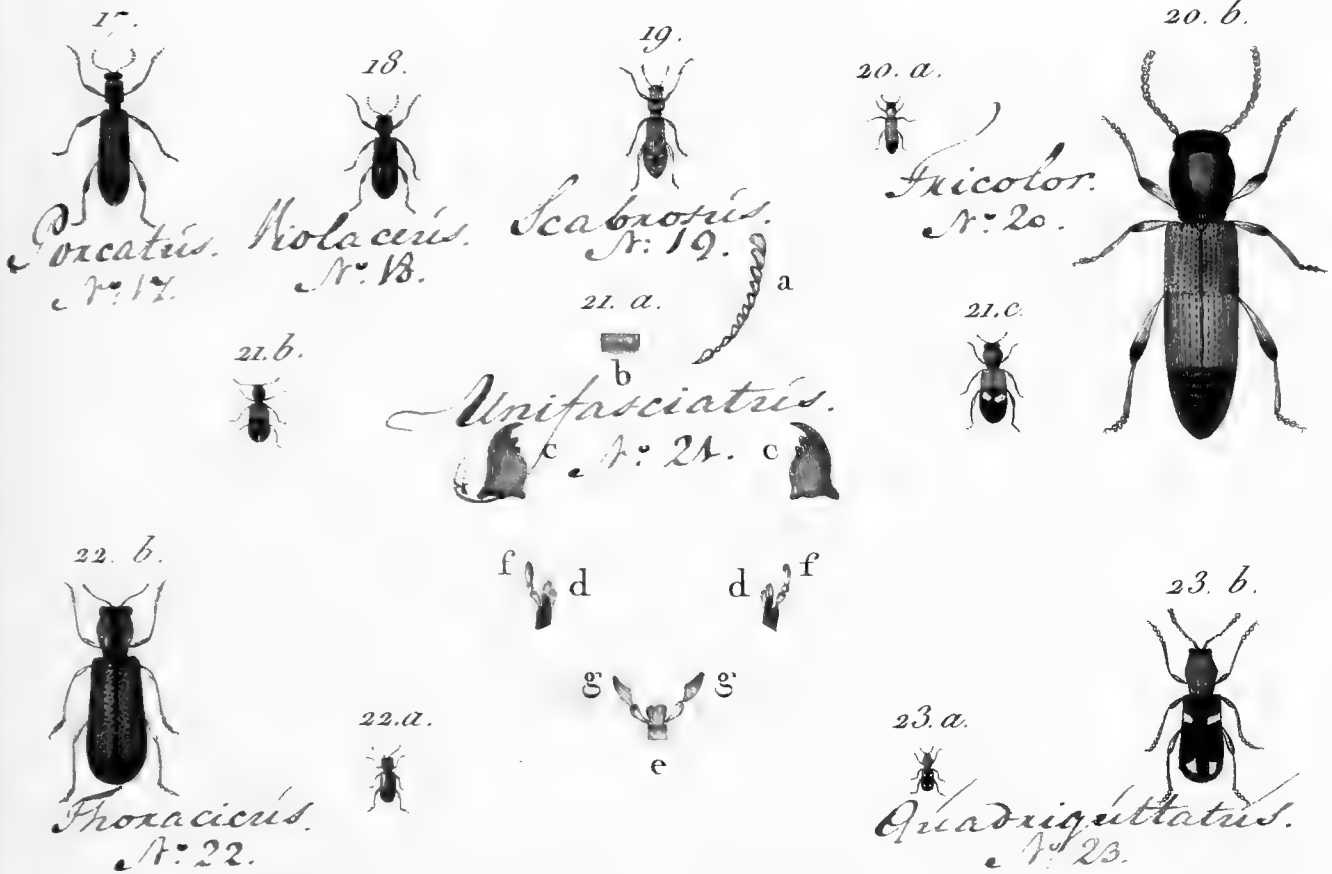 17.
18.
19.
20. a.
20. b.
Porcatus.
N.º 17.
Violaceus.
N.º 18.
Scabrosus.
N.º 19.
Tricolor.
N.º 20.
21. a.
a
b
21. b.
21. c.
Unifasciatus.
N.º 21.
c
c
f
d
d
f
g
g
e
22. b.
22. a.
Thoracicus.
N.º 22.
23. a.
23. b.
Quadriguttatus.
N.º 23.